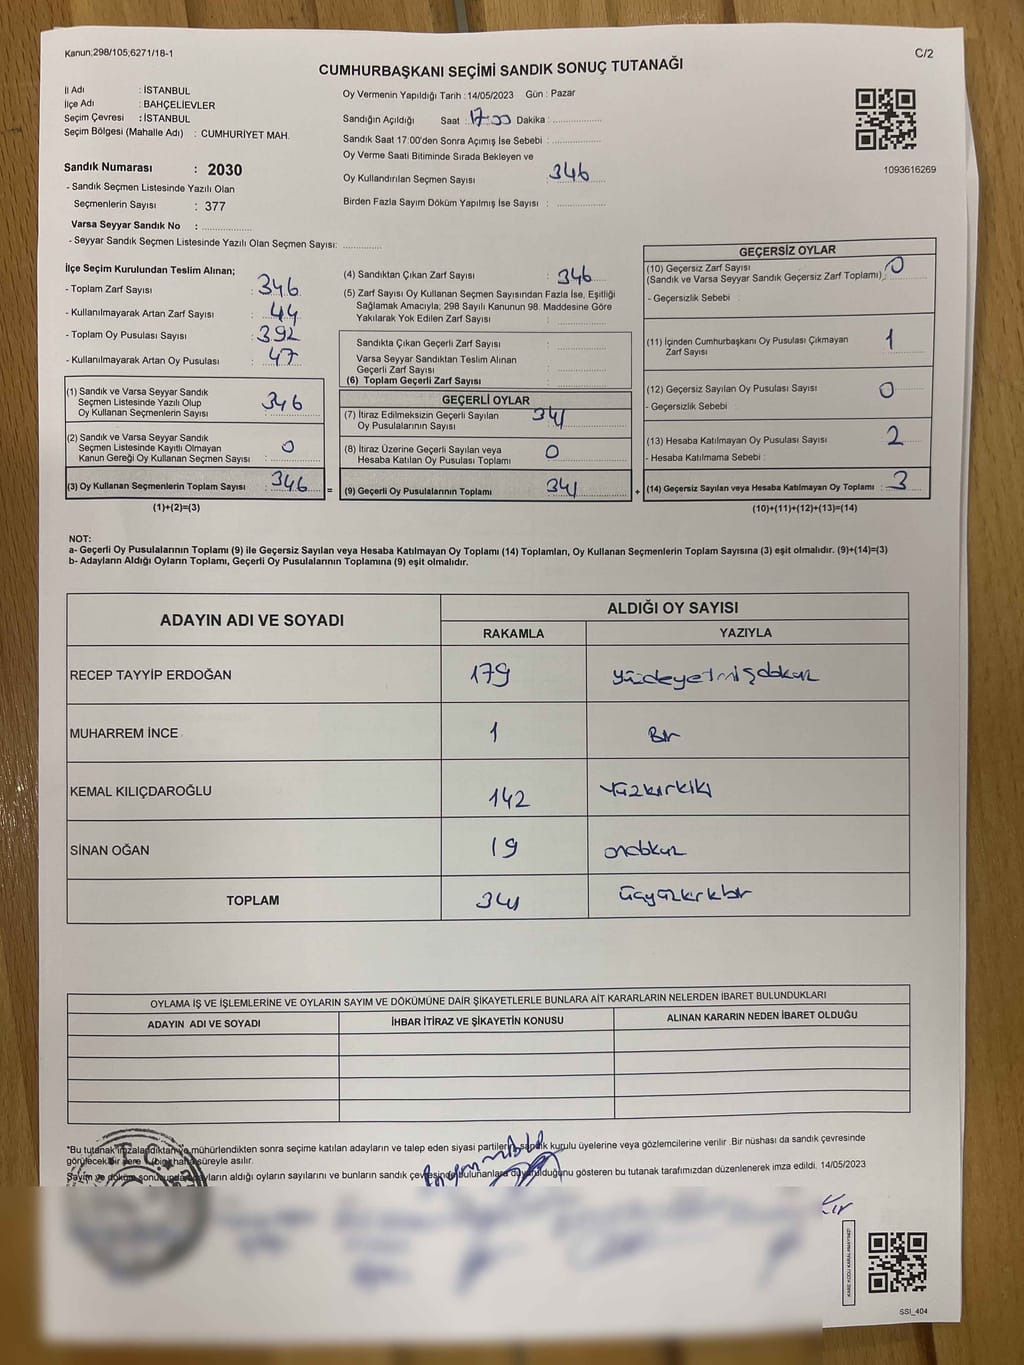 Kanun;298/105;6271/18-1
C/2
CUMHURBAŞKANI SEÇİMİ SANDIK SONUÇ TUTANAĞI
İl Adı : İSTANBUL
İlçe Adı : BAHÇELİEVLER
Seçim Çevresi : İSTANBUL
Seçim Bölgesi (Mahalle Adı) : CUMHURİYET MAH.
Sandık Numarası : 2030
- Sandık Seçmen Listesinde Yazılı Olan
Seçmenlerin Sayısı : 377
Varsa Seyyar Sandık No :
- Seyyar Sandık Seçmen Listesinde Yazılı Olan Seçmen Sayısı:
Oy Vermenin Yapıldığı Tarih : 14/05/2023 Gün : Pazar
Sandığın Açıldığı Saat : 17:00 Dakika :
Sandık Saat 17:00'den Sonra Açımış İse Sebebi :
Oy Verme Saati Bitiminde Sırada Bekleyen ve
Oy Kullandırılan Seçmen Sayısı : 346
Birden Fazla Sayım Döküm Yapılmış İse Sayısı :
1093616269
İlçe Seçim Kurulundan Teslim Alınan;
- Toplam Zarf Sayısı : 346
- Kullanılmayarak Artan Zarf Sayısı : 44
- Toplam Oy Pusulası Sayısı : 392
- Kullanılmayarak Artan Oy Pusulası : 47
(1) Sandık ve Varsa Seyyar Sandık
Seçmen Listesinde Yazılı Olup
Oy Kullanan Seçmenlerin Sayısı : 346
(2) Sandık ve Varsa Seyyar Sandık
Seçmen Listesinde Kayıtlı Olmayan
Kanun Gereği Oy Kullanan Seçmen Sayısı : 0
(3) Oy Kullanan Seçmenlerin Toplam Sayısı : 346 =
(1)+(2)=(3)
(4) Sandıktan Çıkan Zarf Sayısı : 346
(5) Zarf Sayısı Oy Kullanan Seçmen Sayısından Fazla İse, Eşitliği
Sağlamak Amacıyla; 298 Sayılı Kanunun 98. Maddesine Göre
Yakılarak Yok Edilen Zarf Sayısı :
Sandıkta Çıkan Geçerli Zarf Sayısı :
Varsa Seyyar Sandıktan Teslim Alınan
Geçerli Zarf Sayısı :
(6) Toplam Geçerli Zarf Sayısı :
GEÇERLİ OYLAR
(7) İtiraz Edilmeksizin Geçerli Sayılan
Oy Pusulalarının Sayısı : 341
(8) İtiraz Üzerine Geçerli Sayılan veya
Hesaba Katılan Oy Pusulası Toplamı : 0
(9) Geçerli Oy Pusulalarının Toplamı : 341 +
GEÇERSİZ OYLAR
(10) Geçersiz Zarf Sayısı
(Sandık ve Varsa Seyyar Sandık Geçersiz Zarf Toplamı) : 0
- Geçersizlik Sebebi :
(11) İçinden Cumhurbaşkanı Oy Pusulası Çıkmayan
Zarf Sayısı : 1
(12) Geçersiz Sayılan Oy Pusulası Sayısı : 0
- Geçersizlik Sebebi :
(13) Hesaba Katılmayan Oy Pusulası Sayısı : 2
- Hesaba Katılmama Sebebi :
(14) Geçersiz Sayılan veya Hesaba Katılmayan Oy Toplamı : 3
(10)+(11)+(12)+(13)=(14)
NOT:
a- Geçerli Oy Pusulalarının Toplamı (9) ile Geçersiz Sayılan veya Hesaba Katılmayan Oy Toplamı (14) Toplamları, Oy Kullanan Seçmenlerin Toplam Sayısına (3) eşit olmalıdır. (9)+(14)=(3)
b- Adayların Aldığı Oyların Toplamı, Geçerli Oy Pusulalarının Toplamına (9) eşit olmalıdır.
ADAYIN ADI VE SOYADI
ALDIĞI OY SAYISI
RAKAMLA YAZIYLA
RECEP TAYYİP ERDOĞAN 179 yüzdeyetmişdokuz
MUHARREM İNCE 1 Bir
KEMAL KILIÇDAROĞLU 142 Yüzkırkiki
SİNAN OĞAN 19 ondokuz
TOPLAM 341 üçyüzkırkbir
OYLAMA İŞ VE İŞLEMLERİNE VE OYLARIN SAYIM VE DÖKÜMÜNE DAİR ŞİKAYETLERLE BUNLARA AİT KARARLARIN NELERDEN İBARET BULUNDUKLARI
ADAYIN ADI VE SOYADI İHBAR İTİRAZ VE ŞİKAYETİN KONUSU ALINAN KARARIN NEDEN İBARET OLDUĞU
*Bu tutanak imzalandıktan ve mühürlendikten sonra seçime katılan adayların ve talep eden siyasi partilerin sandık kurulu üyelerine veya gözlemcilerine verilir .Bir nüshası da sandık çevresinde
görülecek bir yere (bir) hafta süreyle asılır.
Sayım ve döküm sonucunda oyların aldığı oyların sayılarını ve bunların sandık çevresinde bulunanlara duyurulduğunu gösteren bu tutanak tarafımızdan düzenlenerek imza edildi. 14/05/2023
T.C.
SSI_404